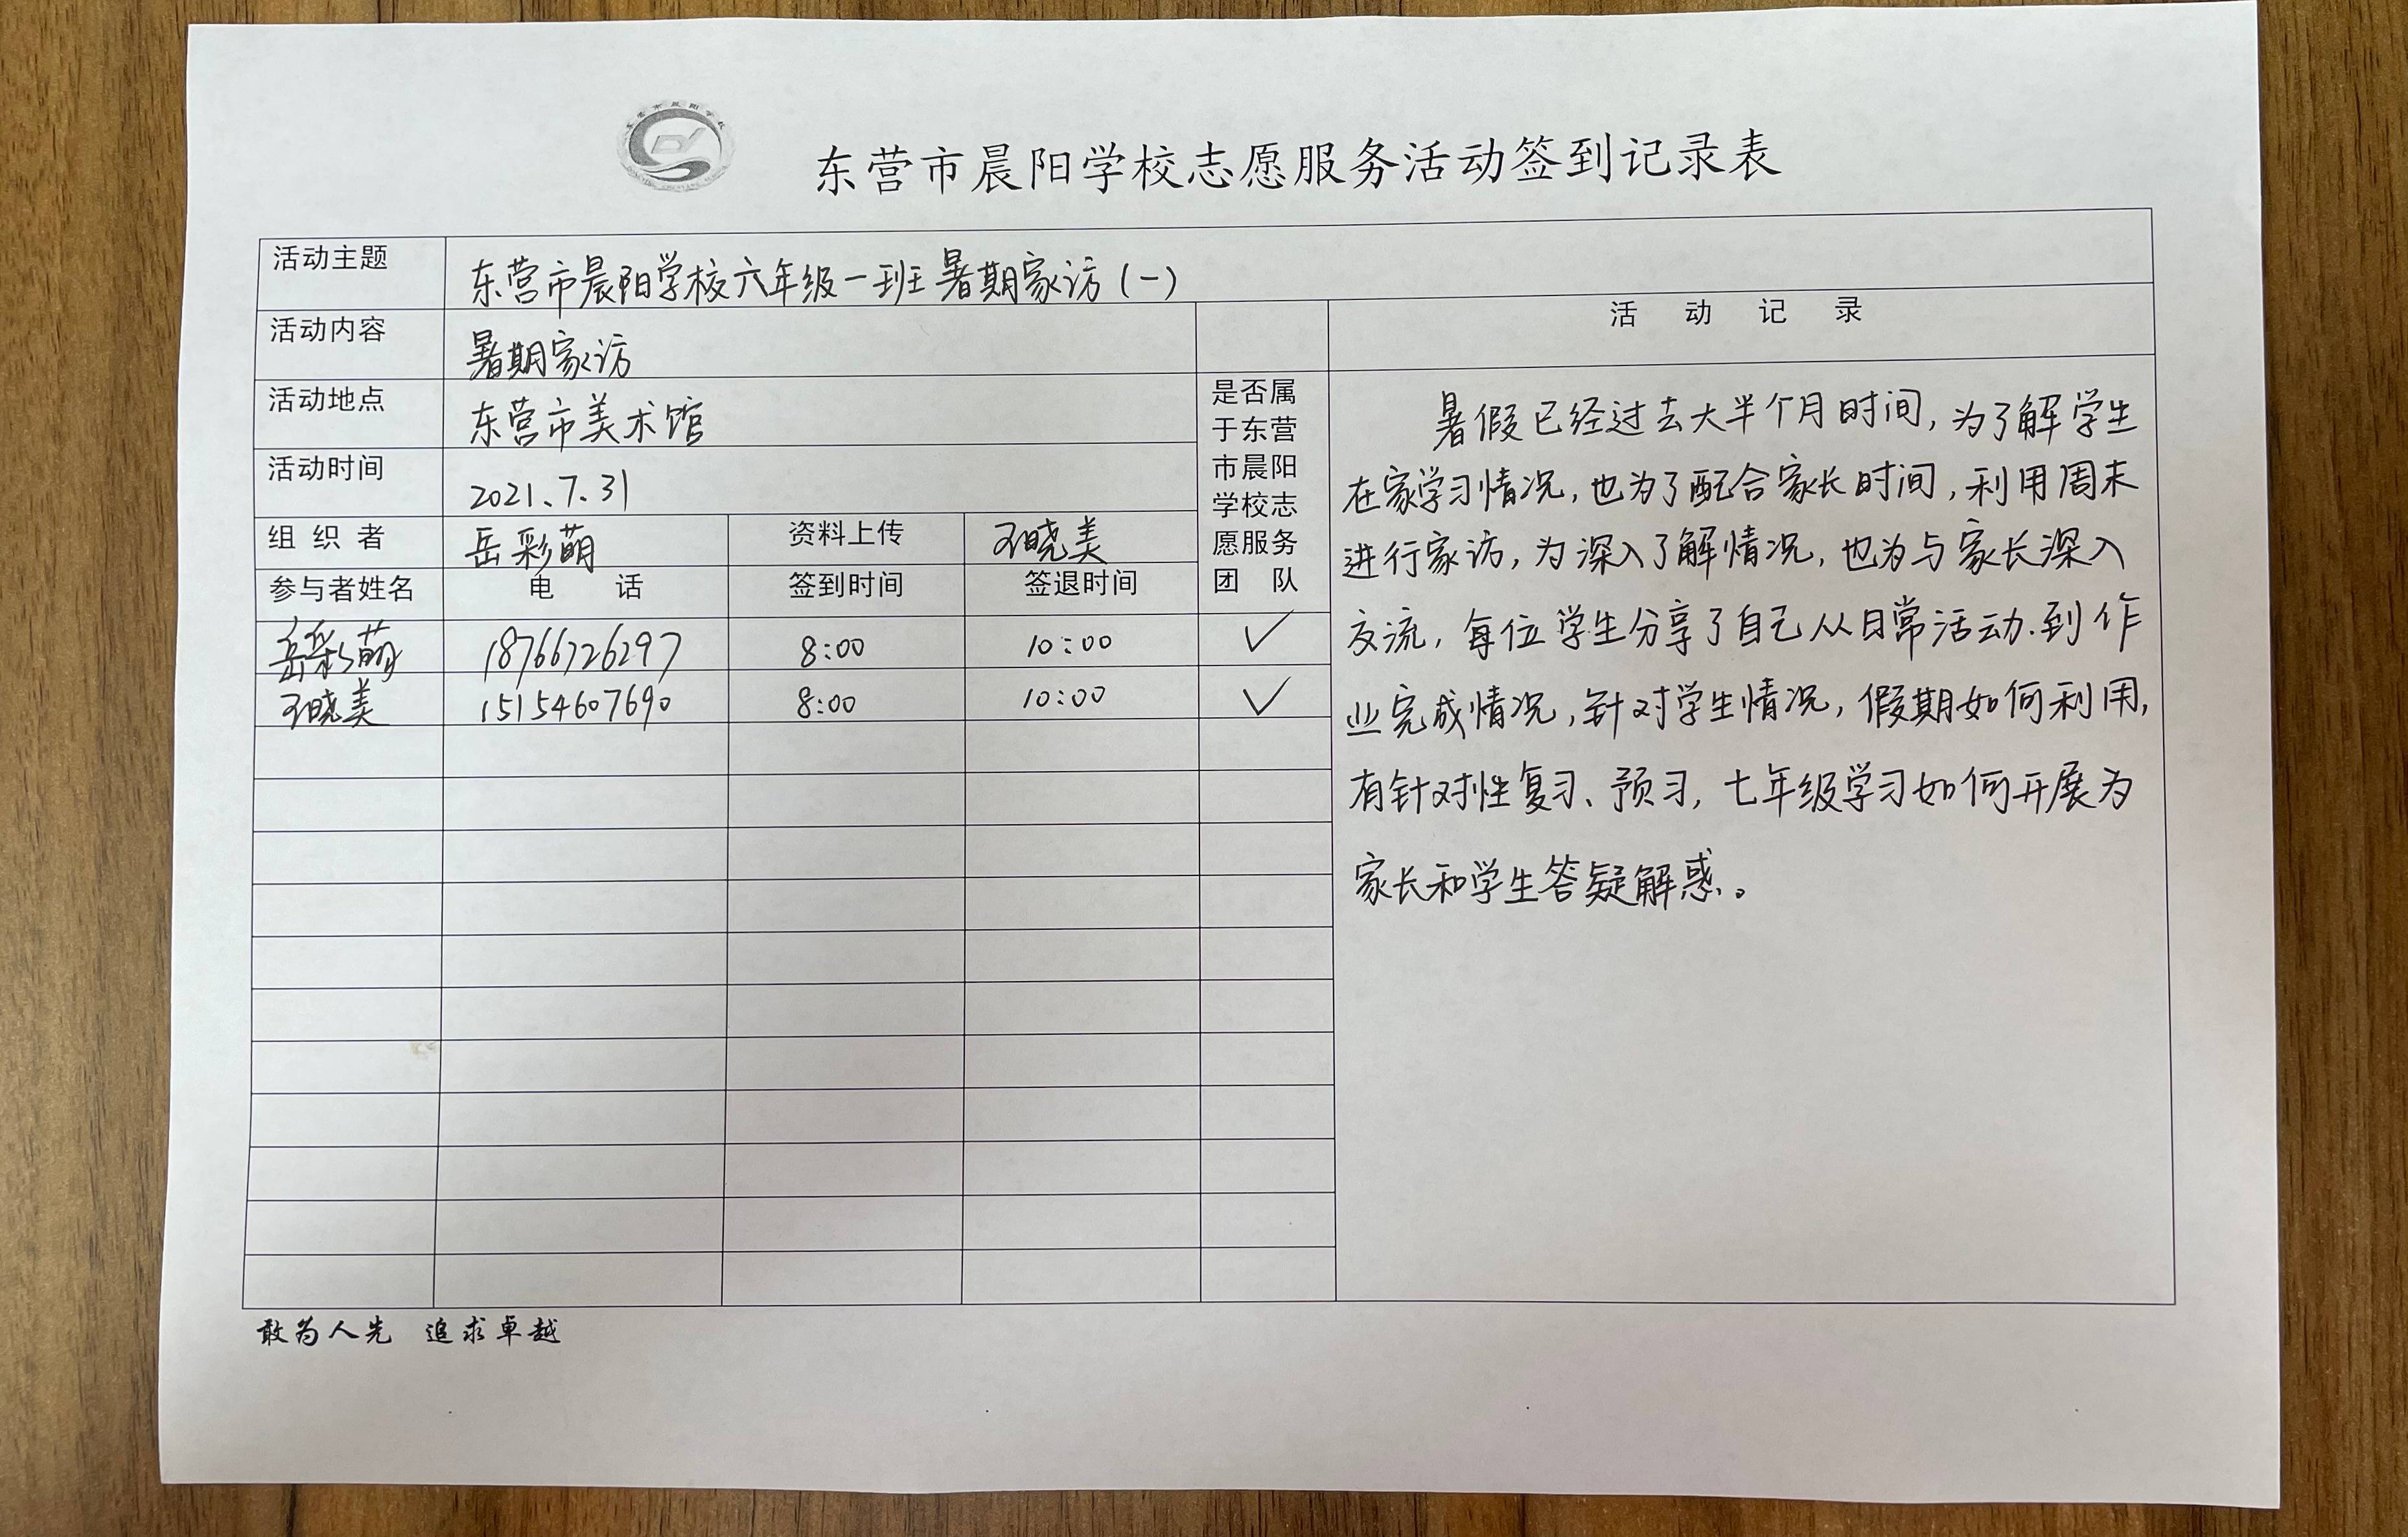 东营市晨阳学校志愿服务活动签到记录表
活动主题 东营市晨阳学校六年级一班暑期家访(一)
活动内容 暑期家访
活动地点 东营市美术馆
活动时间 2021.7.31
组织者 岳彩萌 资料上传 王晓美
参与者姓名 电话 签到时间 签退时间
是否属
于东营
市晨阳
学校志
愿服务
团队
岳彩萌 18766726297 8:00 10:00 ✓
王晓美 15154607690 8:00 10:00 ✓
活动记录
暑假已经过去大半个月时间,为了解学生
在家学习情况,也为了配合家长时间,利用周末
进行家访,为深入了解情况,也为与家长深入
交流,每位学生分享了自己从日常活动.到作
业完成情况,针对学生情况,假期如何利用,
有针对性复习、预习,七年级学习如何开展为
家长和学生答疑解惑。
敢为人先 追求卓越